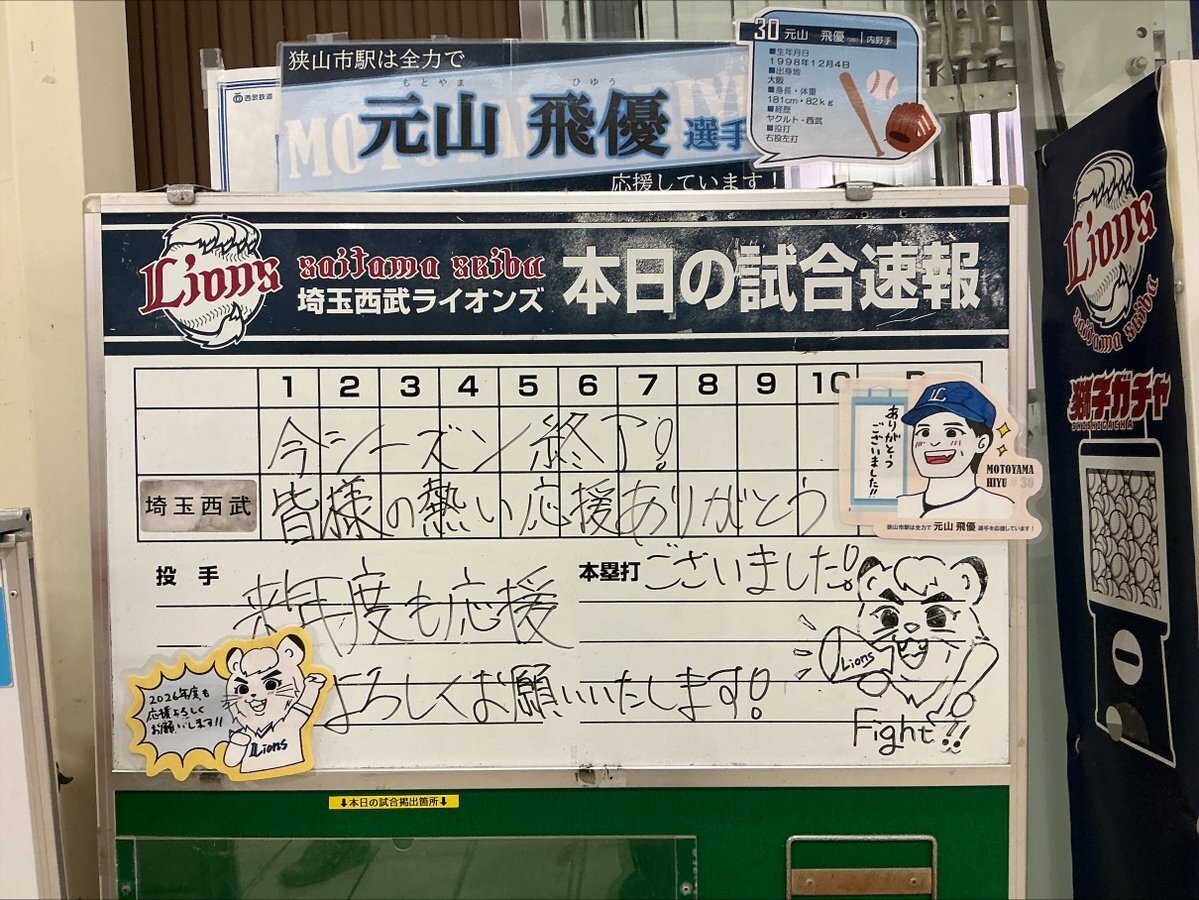 狭山市駅は全力で
西武鉄道
もとやま ひゆう
元山 飛優 選手
応援しています！
30 元山 飛優 内野手
■生年月日
1998年12月4日
■出身地
大阪
■身長・体重
181cm・82kg
■経歴
ヤクルト - 西武
■投打
右投左打
Lions saitama seibu 埼玉西武ライオンズ 本日の試合速報
1 2 3 4 5 6 7 8 9 10
今シーズン終了!
埼玉西武 皆様の熱い応援ありがとう
ございました!
投手 本塁打
来年度も応援
よろしくお願いいたします!
ありがとう
ございました!!
MOTOYAMA
HIYU #30
狭山市駅は全力で 元山 飛優 選手を応援しています！
2026年度も
応援よろしく
お願いします!!
Lions
Lions
Fight!!
↓本日の試合掲出箇所↓
Lions
saitama seibu
獅子ガチャ
SHISHIGACHA